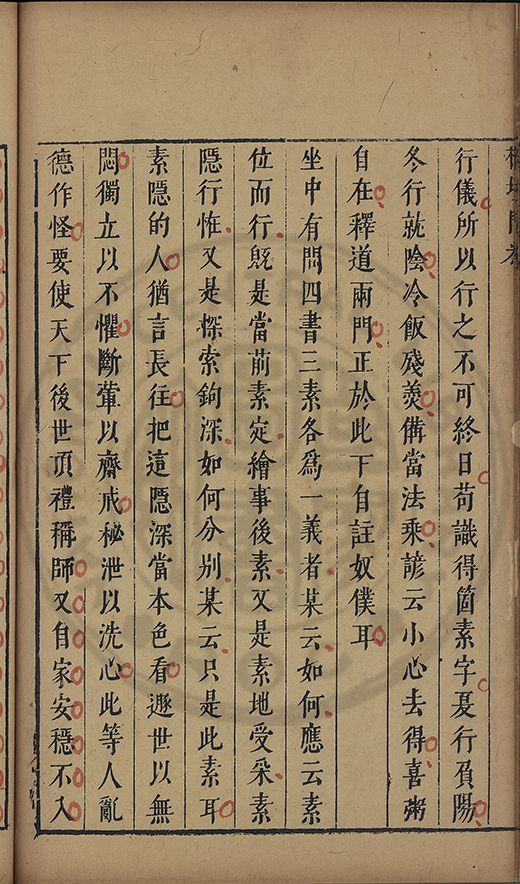 行儀所以行之不可終日苟識得箇素字夏行負陽
冬行就陰冷飯殘羮儹當法乘諺云小心去得喜粥
自在釋道兩門正於此下自註奴僕耳
坐中有問四書三素各爲一義者某云如何應云素
位而行旣是當前素定繪事後素又是素地受采素
隱行惟又是探索鉤深如何分别某云只是此素耳
素隱的人猶言長往把這隱深當本色看遯世以無
悶獨立以不懼斷葷以齋戒秘泄以洗心此等人亂
德作怪要使天下後世頂禮稱師又自家安穩不入